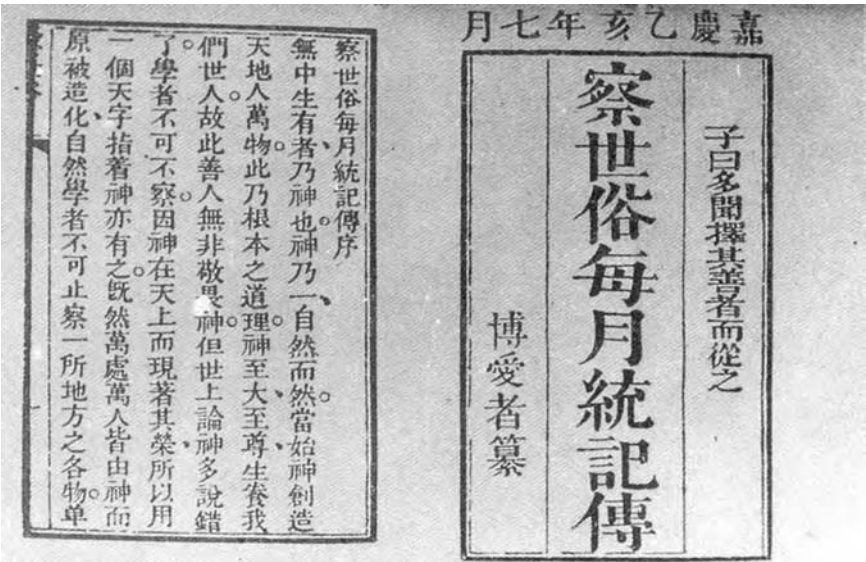 嘉慶乙亥年七月
子曰多聞擇其善者而從之
察世俗每月統記傳
博愛者纂
察世俗每月統記傳序
無中生有者、乃神也。神乃一、自然而然。當始神創造
天地人萬物。此乃根本之道理。神至大、至尊、生養我
們世人。故此善人無非敬畏神。但世上論神多說錯
了。學者不可不察。因神在天上而現著其榮、所以用
一個天字指着神亦有之。既然萬處萬人皆由神而
原被造化、自然學者不可止察一所地方之各物。单